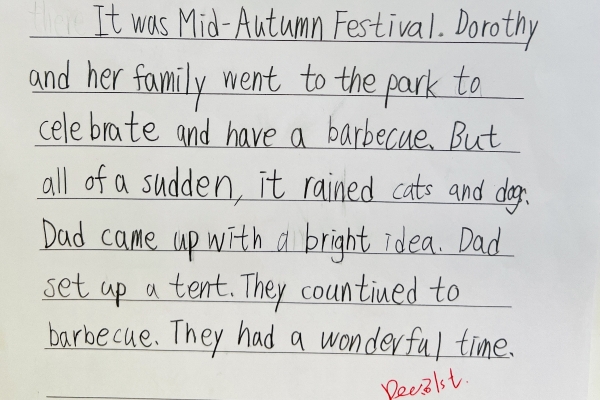 It was Mid-Autumn Festival. Dorothy
and her family went to the park to
celebrate and have a barbecue. But
all of a sudden, it rained cats and dogs.
Dad came up with a bright idea. Dad
set up a tent. They countiued to
barbecue. They had a wonderful time.
Dec.31st.